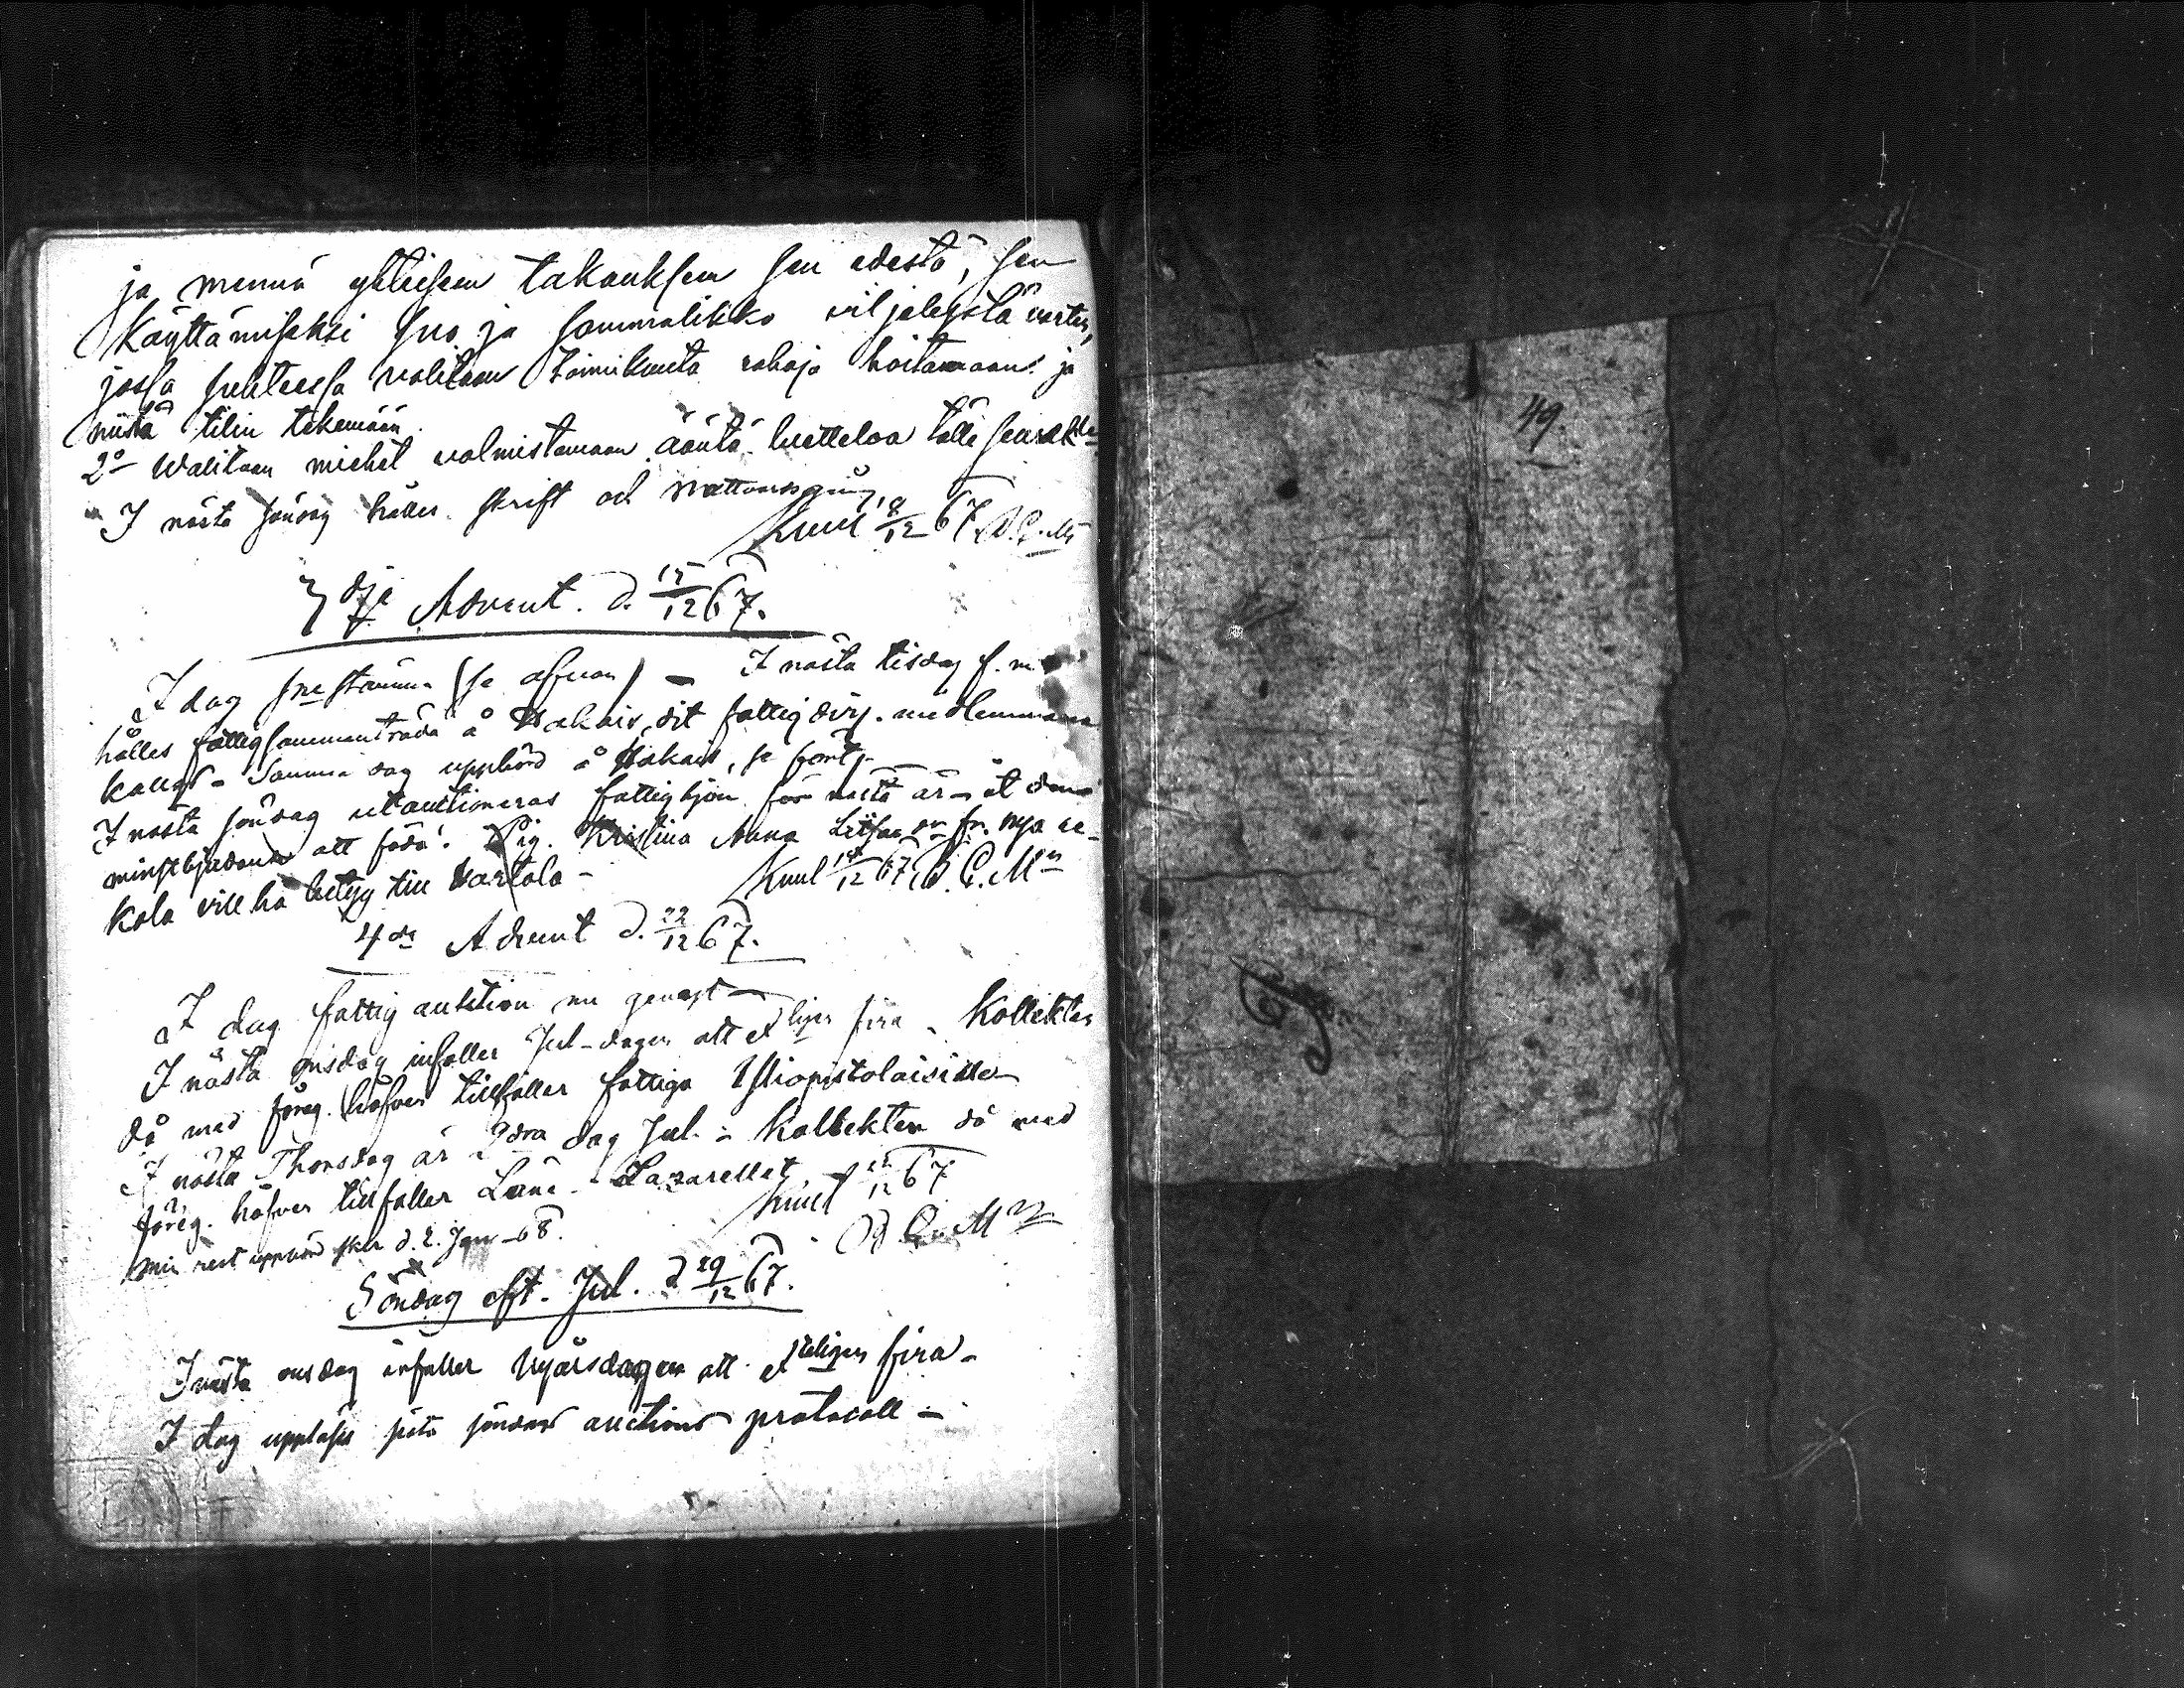 ja mennä yhteiseen takaukseen sen edestä, sen
Käyttämiseksi suo ja sammalikko viljelystä varten,
jossa suhteessa valitaan toimikunta rahoja hoitamaan ja
niistä tiliä tekemään.
2o Walitaan miehet valmistamaan ääntö luetteloa tälle seurak
I nästa söndag hålles skrift och nattvardsgång
Kunl 8/12 67
3dje Advent. d. 15/12 67.
I dag stämma (se ofvan) — I nästa tisdag f. m.
hålles fattigsammanträde å dit fattig dirj. medlemmarna
kallas - Samma dag uppbörd å se
I nästa söndag utauctioneras fattighjon för nästa år — åt den
minstbjudande att föda. Pig. Kristina Anna fr. Nya
kala vill ha betyg till Kartala -
Kunl 14/12 67 B. G. Mn
4de Advent d. 22/12 67.
I dag fattig auktion nu genast —
I nästa onsdag infaller Jul-dagen att xligen fira - Kollekten
då med föreg. håfven tillfaller fattiga
I nästa Thorsdag är 2dra dag Jul. - Kollekten då med
föreg. håfven tillfaller Läns-Lazarettet
Kunl 12 67
min rest uppbörd sker d. 2. Janr -68.
Mn
Söndag eft. Jul. d. 29/12 67.
I nästa onsdag infaller Nyårsdagen att xteligen fira -
I dag uppläses sista söndags auctions protocoll -
49.